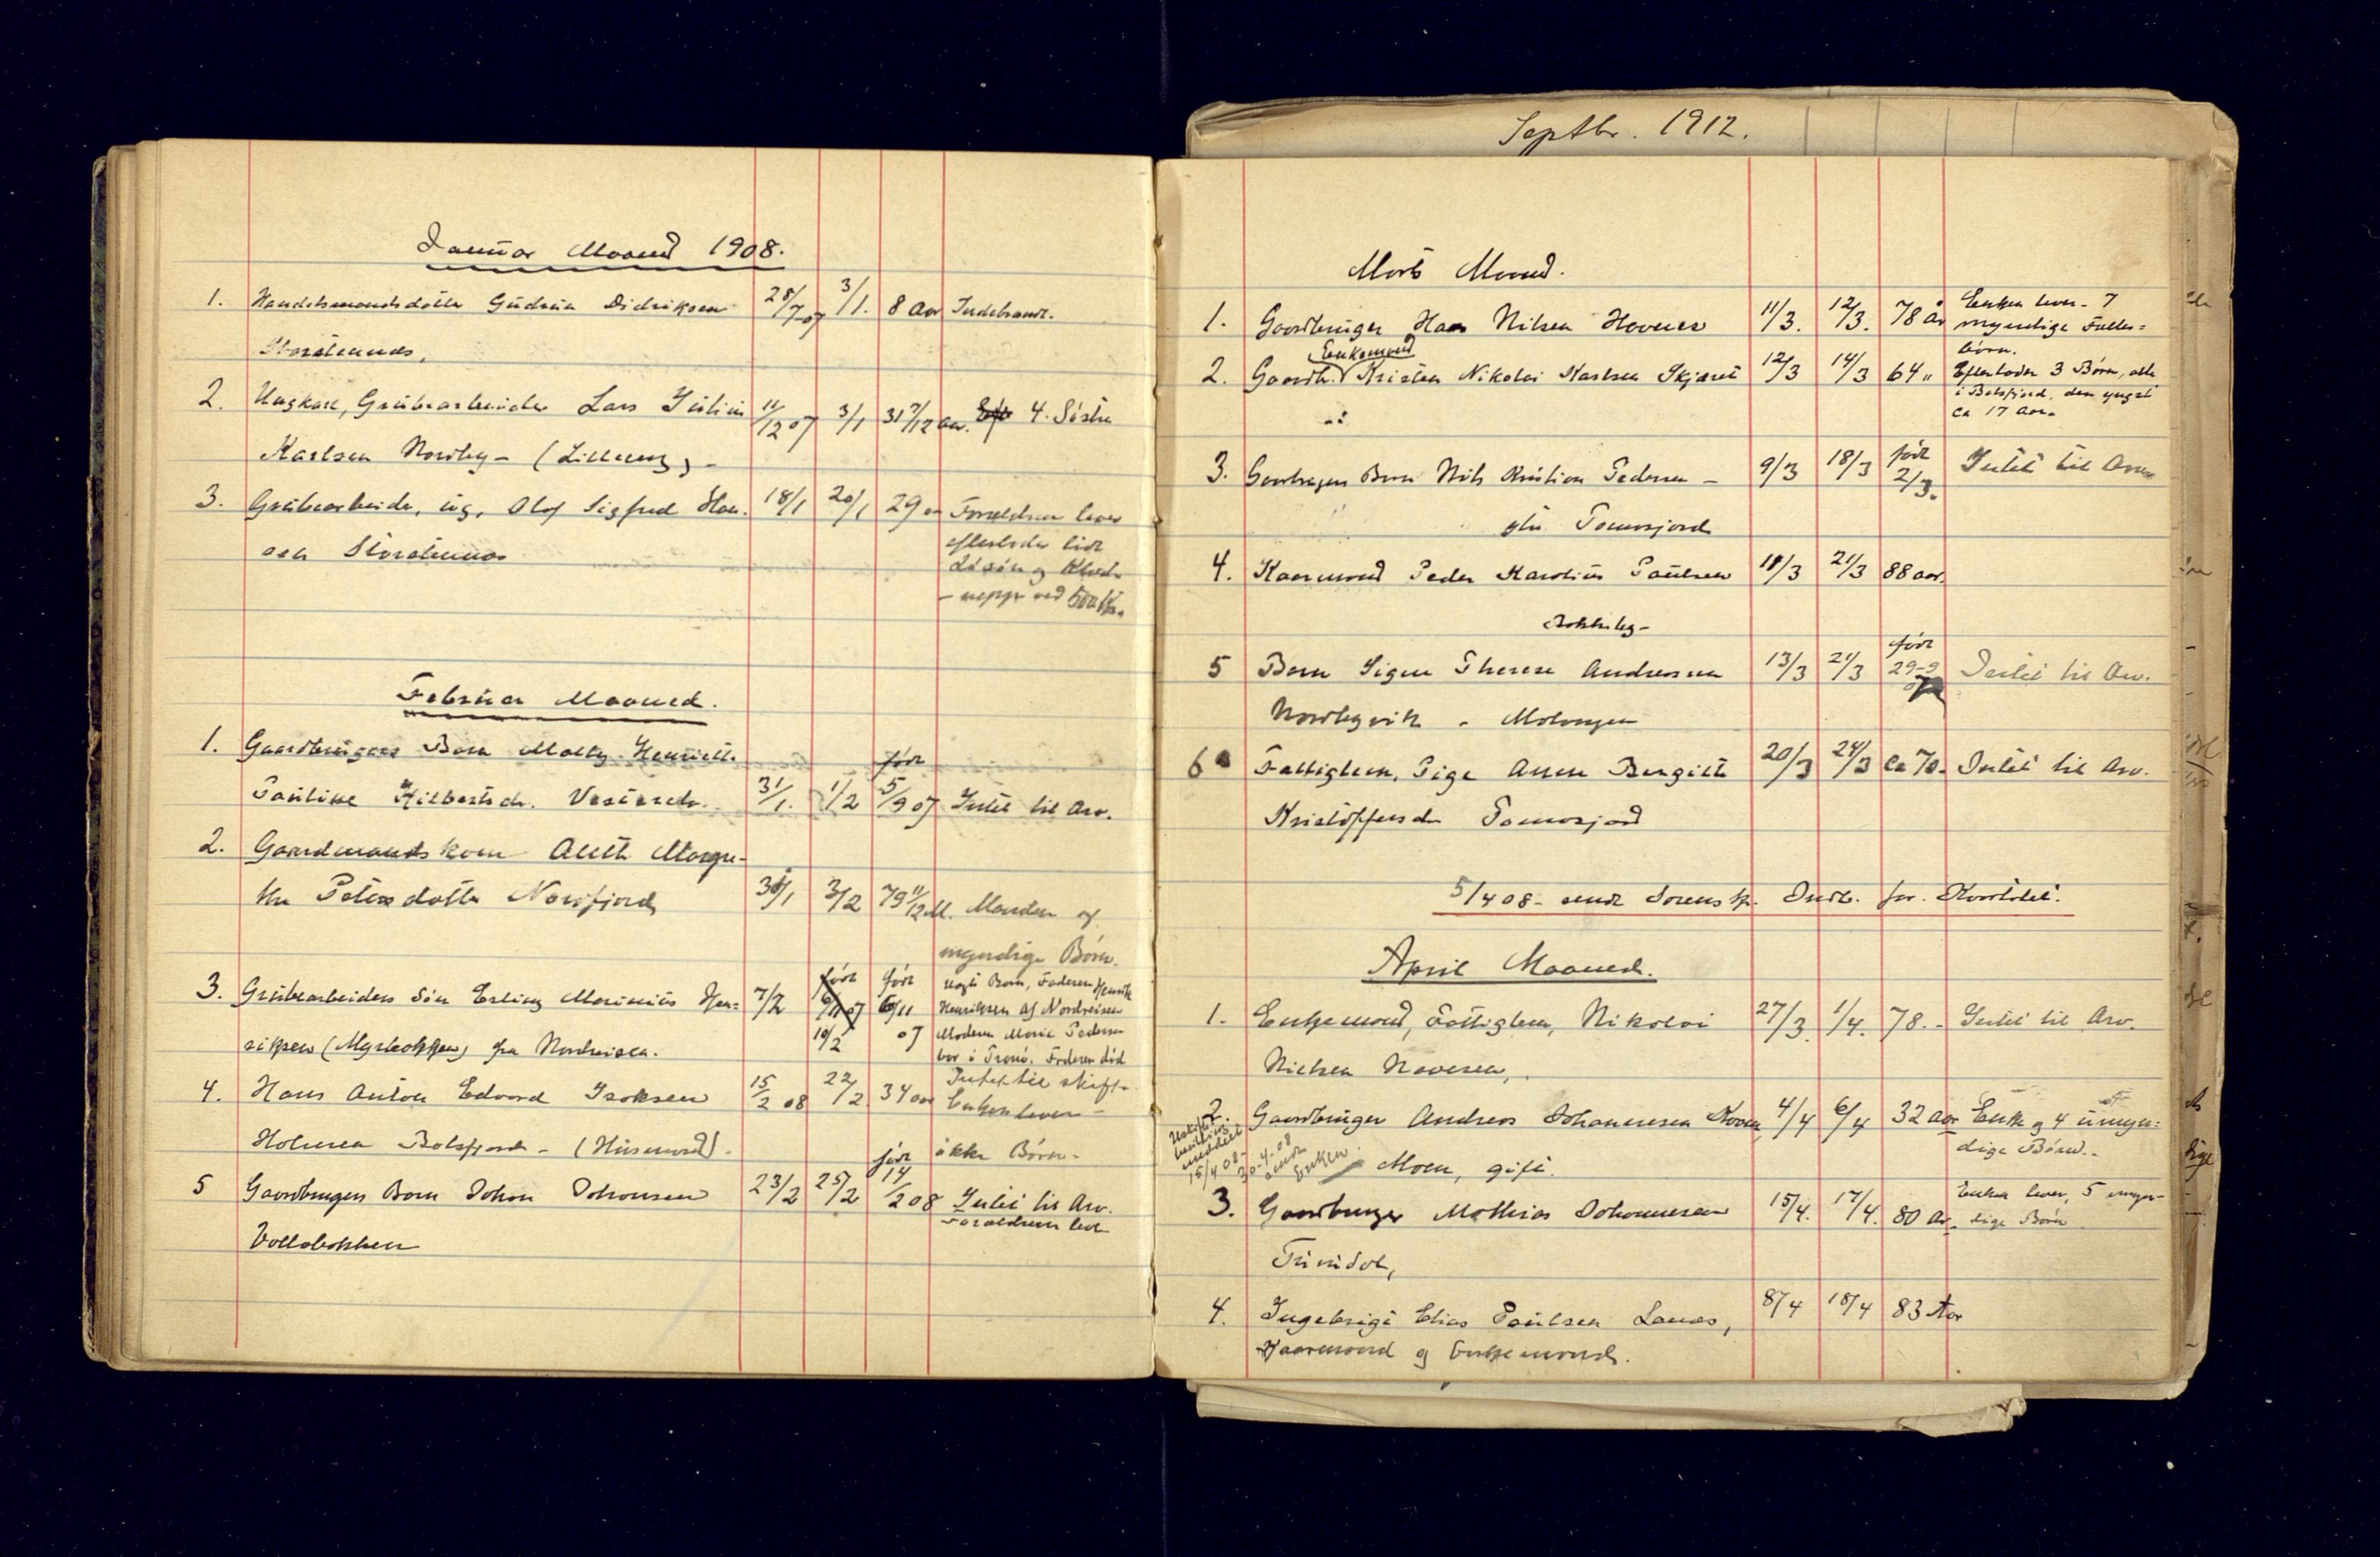 Januar Maaned 1908.
1. Handelsmandsdatter Gudrun Didriksen 28/7-07 3/1. 8 Aar Indebrændt.
Storstennæs.
2. Ungkarl, Grubearbeider Lars Julius 11/12 07 3/1 31 7/12 aar. 4. Søstre
Karlsen Nordby - (Lilleeng) -
3. Grubearbeider, ug, Olaf Sigfred Han- 18/1 20/1 29 aar Forældrene lever
sen Storstennæs efterlader lidt
Løsøre og Klæder
- neppe ved 500 Kr.
Februar Maaned.
1. Gaardbrugers Barn Malby Henriette født
Pauline Hilbertsdr. Vesterelv. 31/1. 1/2 5/9 07 Intet til Arv.
2. Gaardmandskone Aleth Margre-
the Petersdatter Nordfjord 30/1 3/2 79 11/12 M. Manden og
myndige Børn.
3. Grubearbeiders Søn Erling Marinius Hen- 7/2 født 6/11 07 født 6/11 uægte Barn, Faderen Henrik
Henriksen af Nordreisen
riksen (Myrbakken) fra Nordreisen. 10/2 07 Moderen Marie Pedersen
bor i Tromsø. Faderen død
4. Hans Anton Edvard Isaksen 15/2 08 22/2 34 aar Intet til skifte.
Enken lever -
Holmen Balsfjord - (Husmand). ikke Børn -
5 Gaardbrugers Barn Johan Johansen 23/2 25/2 født 14/2 08 Intet til Arv.
Forældrene lever
Vollabakken
Septbr. 1912.
Marts Maaned.
1. Gaardbruger Hans Nilsen Hovenes 11/3. 12/3. 78 år Enken lever - 7
myndige Fælles=
børn.
Enkemand
2. Gaardb. Kristen Nikolai Karlsen Skjæret 12/3 14/3 64 " Efterlader 3 Børn, alle
i Balsfjord, den yngste
ca 17 Aar.
3. Gaardbrugers Barn Nils Kristian Pedersen - 9/3 18/3 født 2/3. Intet til Arv
ytre Tomasjord
4. Kaarmand Peder Karolius Paulsen 18/3 21/3 88 aar.
Bakkeby -
5 Barn Signe Therese Andreasen 13/3 21/3 født 29-9 Intet til Arv.
Nordbyvik - Malangen
6 Fattiglem, Pige Anne Bergitte 20/3 24/3 Ca 70. Intet til Arv.
Kristoffersdr Tomasjord
5/4 08 - sendt Sorenskr. Indb. for Kvartalet.
April Maaned.
1. Enkemand, Fattiglem, Nikolai 27/3. 1/4. 78. - Intet til Arv.
Nielsen Navaren,
2. Gaardbruger Andreas Johannesen 4/4 6/4 32 aar Enke og 4 umyn=
dige Børn. -
15/4 08 - 30-4-08 sendt Enken
Moen, gift.
3. Gaardbruger Mathias Johannesen 15/4. 17/4. 80 Ar. Enken lever, 5 myn-
dige Børn
4. Ingebrigt Elias Paulsen Lanæs, 8/4 18/4 83 Aar
Kaarmand og Enkemand.